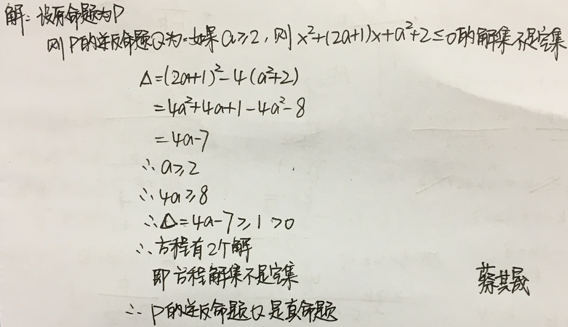 解：设原命题为P
则P的逆否命题Q为：如果a≥2，则x²+(2a+1)x+a²+2≤0的解集不是空集
Δ=(2a+1)²-4(a²+2)
=4a²+4a+1-4a²-8
=4a-7
∴a≥2
∴4a≥8
∴Δ=4a-7≥1>0
∴方程有2个解
即方程解集不是空集
∴P的逆否命题Q是真命题
蔡其晟